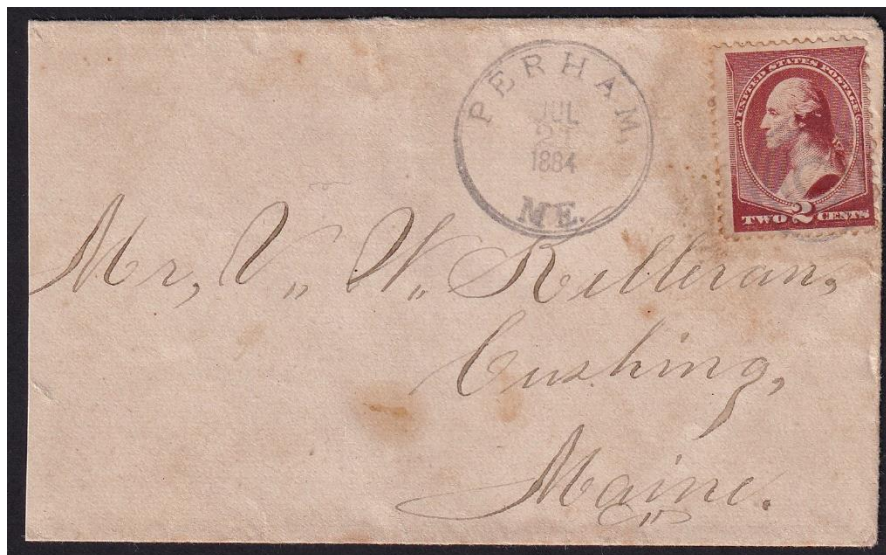 PERHAM
JUL
1884
ME.
UNITED STATES POSTAGE
TWO 2 CENTS
Mr, V,, W,, Killeran,
Cushing,
Maine.